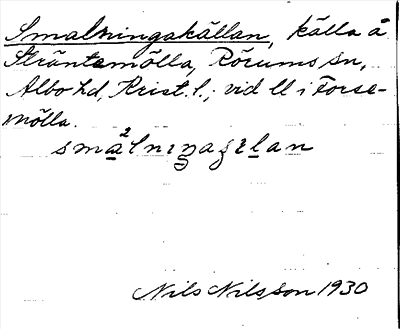 Smalningakällan, källa å
Sträntemölla, Rörums sn,
Albo hd, Krist. l., vid ll i Forse-
mölla.
Nils Nilsson 1930